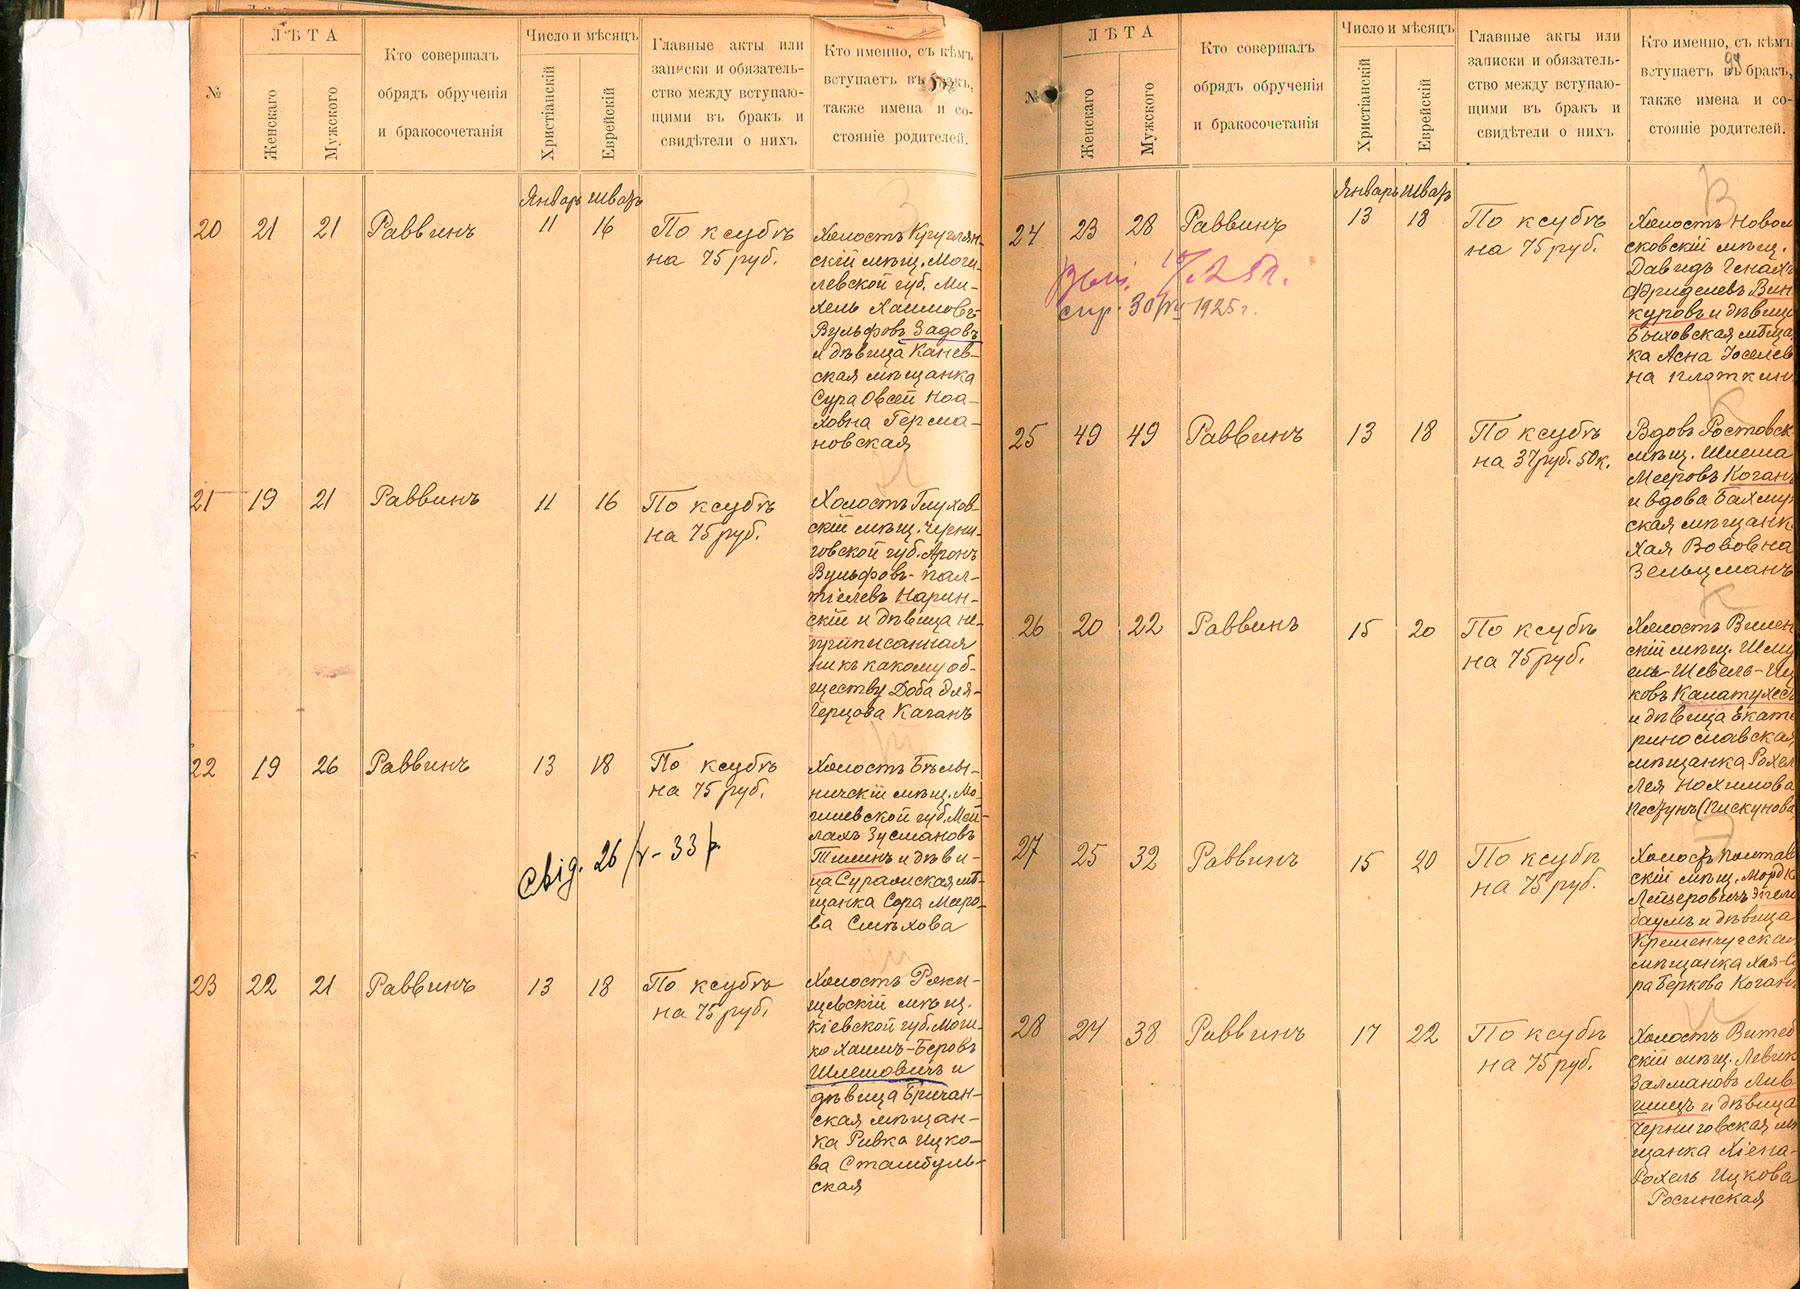 ЛѢТА
Число и мѣсяцъ
№
Женскаго
Мужского
Кто совершалъ
обрядъ обрученія
и бракосочетанія
Христіанскій
Еврейскій
Главные акты или
записки и обязатель-
ство между вступаю-
щими въ бракъ и
свидѣтели о нихъ
Кто именно, съ кѣмъ
вступаетъ въ бракъ,
также имена и со-
стояніе родителей.
Январь Шватъ
20 21 21 Раввинъ 11 16 По ксубѣ
на 75 руб.
Холостъ Круглян-
скій мѣщ. Моги-
левской губ. Ми-
хель Хаимовъ-
Вульфовъ Задовъ
и дѣвица Канев-
ская мѣщанка
Сура Овсей Ноа-
ховна Герма-
новская
21 19 21 Раввинъ 11 16 По ксубѣ
на 75 руб.
Холостъ Глухов-
скій мѣщ. Черни-
говской губ. Аронъ
Вульфовъ-Пал-
тіелевъ Нарин-
скій и дѣвица не-
приписанная
ни къ какому об-
ществу Доба Эля-
Герцова Каганъ
22 19 26 Раввинъ 13 18 По ксубѣ
на 75 руб.
Холостъ Бѣлы-
ничскій мѣщ. Мо-
гилевской губ. Мей-
лахъ Зусмановъ
Тилинъ и дѣви-
ца Суражская мѣ-
щанка Сора Мееро-
ва Смѣхова
Свід. 26/V-33 р.
23 22 21 Раввинъ 13 18 По ксубѣ
на 75 руб.
Холостъ Ржи-
щевскій мѣщ.
Кіевской губ. Мош-
ко Хаимъ-Беровъ
Шлемовичъ и
дѣвица Бричан-
ская мѣщан-
ка Ривка Ицко-
ва Стамбуль-
ская
94
ЛѢТА
Число и мѣсяцъ
№
Женскаго
Мужского
Кто совершалъ
обрядъ обрученія
и бракосочетанія
Христіанскій
Еврейскій
Главные акты или
записки и обязатель-
ство между вступаю-
щими въ бракъ и
свидѣтели о нихъ
Кто именно, съ кѣмъ
вступаетъ въ бракъ,
также имена и со-
стояніе родителей.
Январь Шватъ
24 23 28 Раввинъ 13 18 По ксубѣ
на 75 руб.
Холостъ Новом
сковскій мѣщ.
Давидъ Генахъ
Фриделевъ Вин
куровъ и дѣвица
Быховская мѣща
ка Асна Іоселев
на Плоткин
спр. 30/VII 1925 г.
25 49 49 Раввинъ 13 18 По ксубѣ
на 37 руб. 50 к.
Вдовъ Ростовск
мѣщ. Шлема
Мееровъ Коганъ
и вдова Бахму
ская мѣщанк
Хая Вововна
Зельцманъ
26 20 22 Раввинъ 15 20 По ксубѣ
на 75 руб.
Холостъ Вилен
скій мѣщ. Шму
ель-Шевель-Иц
ковъ Калатухес
и дѣвица Екате
ринославская
мѣщанка Рохел
Лея Нохимова
Пестунъ (Пискунова
27 25 32 Раввинъ 15 20 По ксубѣ
на 75 руб.
Холостъ Полтав
скій мѣщ. Мордк
Лейзеровичъ Эпель
баумъ и дѣвица
Кременчугская
мѣщанка Хая-С
ра Беркова Коганъ
28 24 38 Раввинъ 17 22 По ксубѣ
на 75 руб.
Холостъ Витеб
скій мѣщ. Левик
Залмановъ Лив
шицъ и дѣвица
Черниговская мѣ
щанка Хіена-
Рохель Ицкова
Росинская